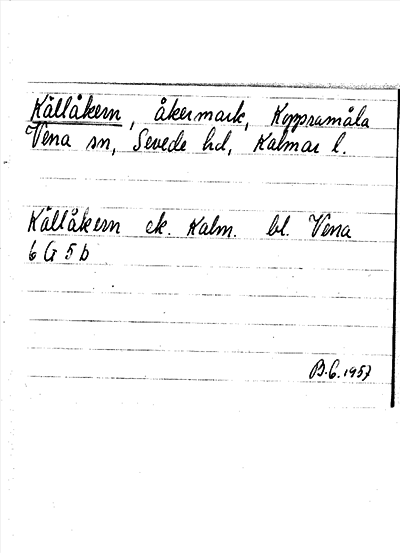 Källåkern, åkermark, Koppramåla
Vena sn, Sevede hd, Kalmar l.
Källåkern ek. Kalm. bl. Vena
6 G 5 b
B.G. 1957